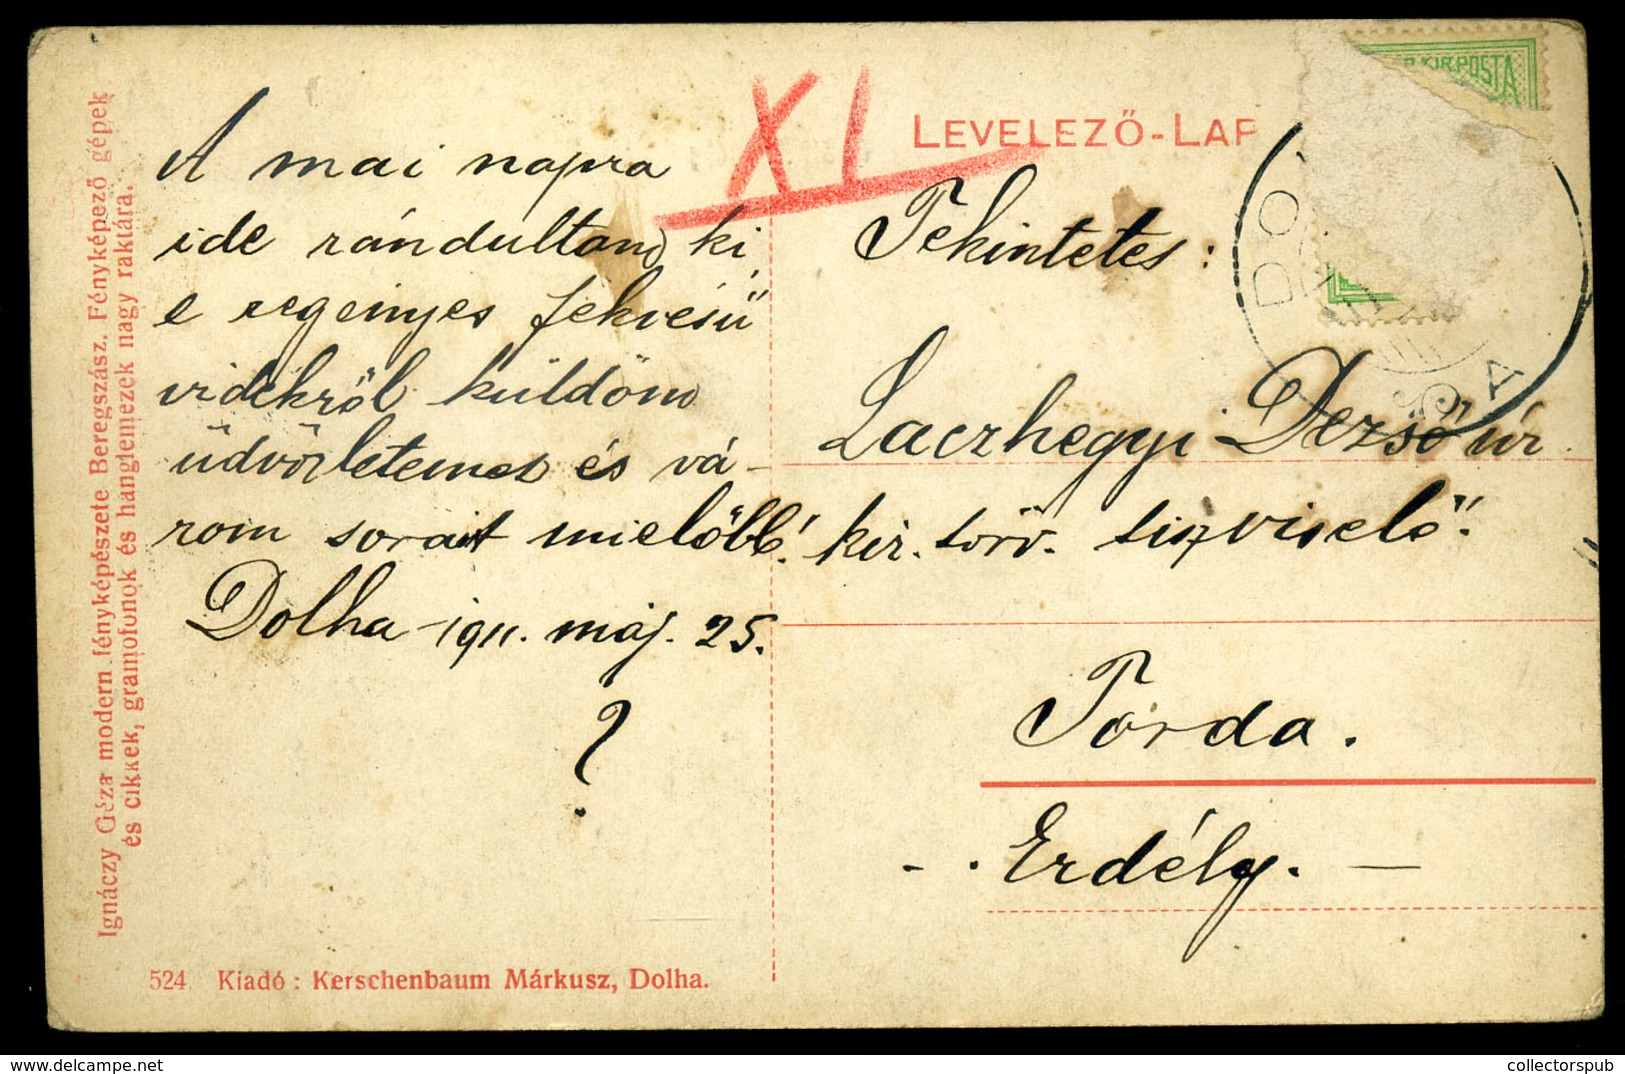 Ignáczy Géza modern fényképészete Beregszász. Fényképező gépek
és cikkek, gramofonok és hanglemezek nagy raktára.
A mai napra
ide rándultam ki
e regényes fekvésű
vidékről küldöm
üdvözletemet és vá-
rom sorait mielőbb!
Dolha 1911. máj. 25.
?
524. Kiadó: Kerschenbaum Márkusz, Dolha.
XI
LEVELEZŐ-LAP
KIR.POSTA
DO
A
Tekintetes:
Laczhegyi Dezső úr
kir. törv. tisztviselő.
Torda.
- . Erdély. -
collectorspub